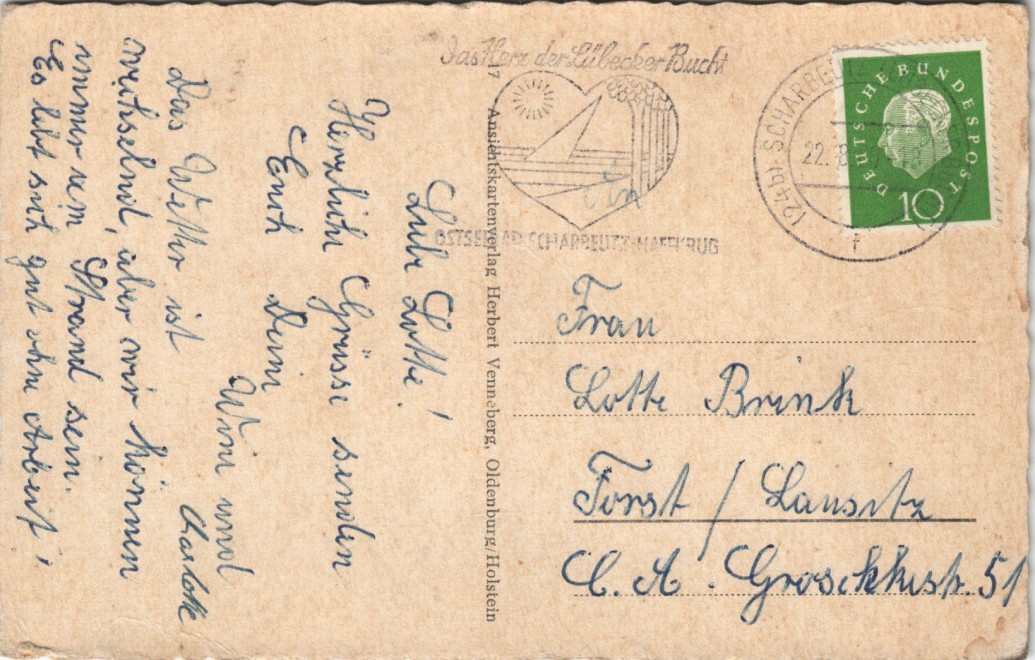 Das Herz der Lübecker Bucht
OSTSEEBAD SCHARBEUTZ-HAFFKRUG
(24b) SCHARBEUTZ
22. 8.
f
DEUTSCHE BUNDESPOST
10
in
Frau
Lotte Brink
Forst / Lausitz
C. A. Groschkestr. 51
7 Ansichtskartenverlag Herbert Venneberg, Oldenburg/Holstein
Liebe Lotte!
Herzliche Grüsse senden
Euch Deine
Wini und
Charlotte
Das Wetter ist
wechselnd, aber wir können
immer Strand sein.
Es lebt sich gut ohne Arbeit!